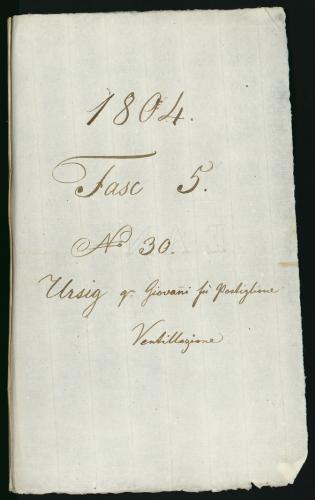 1804.
Fasc 5.
No 30.
Ursig q. Giovani fù Postiglione
Ventillazione